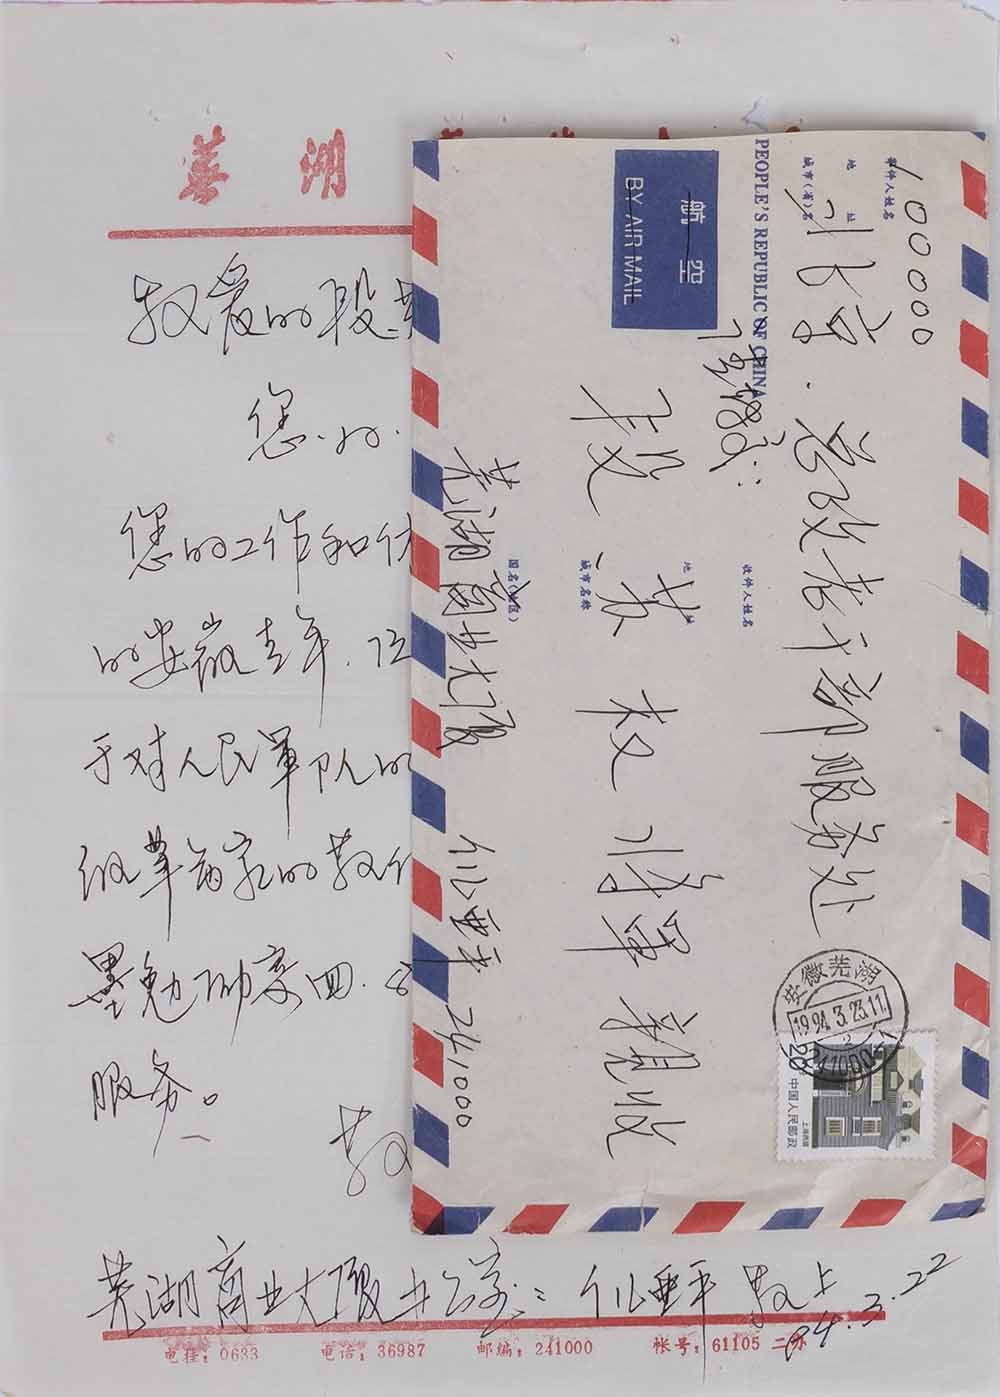 芜湖
敬爱的段苏
您好
您的工作和
的安徽青年.
于对人民军队的
级革命家的敬
墨勉励家四.
服务。
敬
芜湖商业大厦办公室: 仇亚平 敬上
94.3.22
电挂:0633 电话:36987 邮编:241000 帐号:61105 二办
100000
寄件人姓名
地址
城市(省)名
北京·总政老干部服务处
PEOPLE'S REPUBLIC OF CHINA
航空
BY AIR MAIL
收件人姓名
地址
城市名称
国名(地区)
段苏权将军 亲收
芜湖商业大厦 仇亚平 241000
安徽芜湖
1994.3.23.11
241000
20
中国人民邮政
上海民居